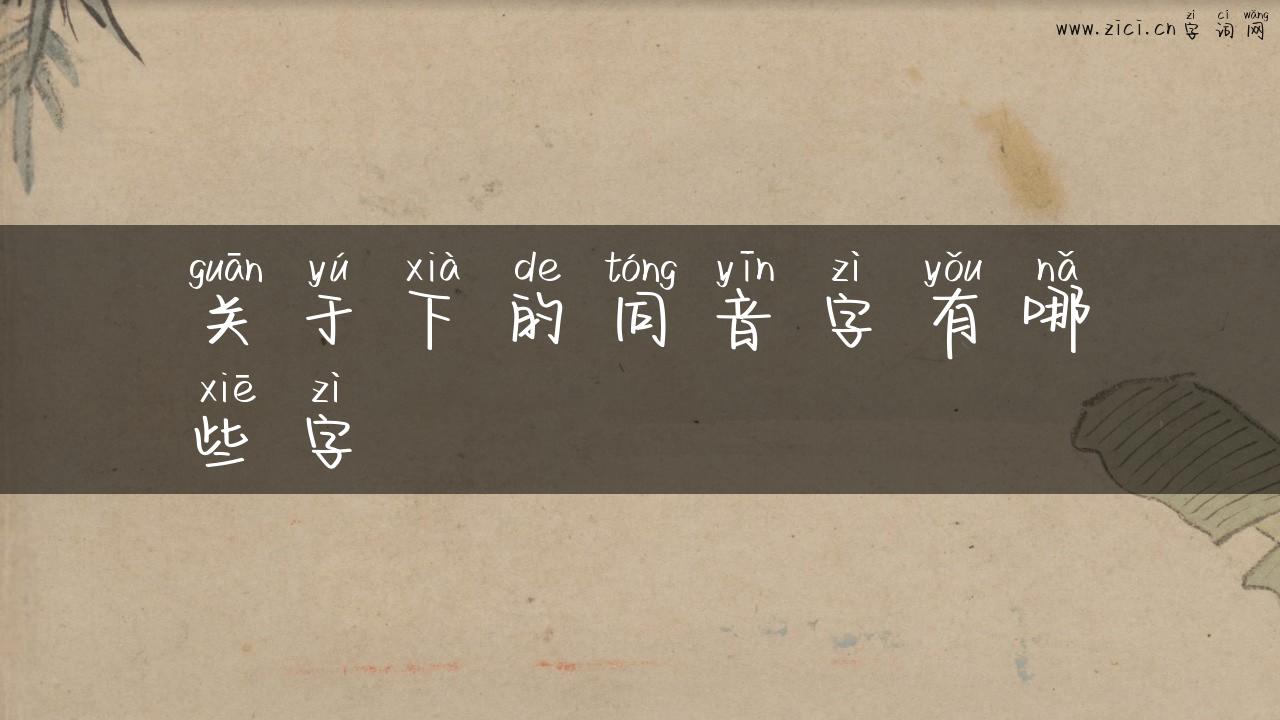 zì cí wǎng
www.zici.cn 字 词 网
guān yú xià de tóng yīn zì yǒu nǎ
关 于 下 的 同 音 字 有 哪
xiē zì
些 字